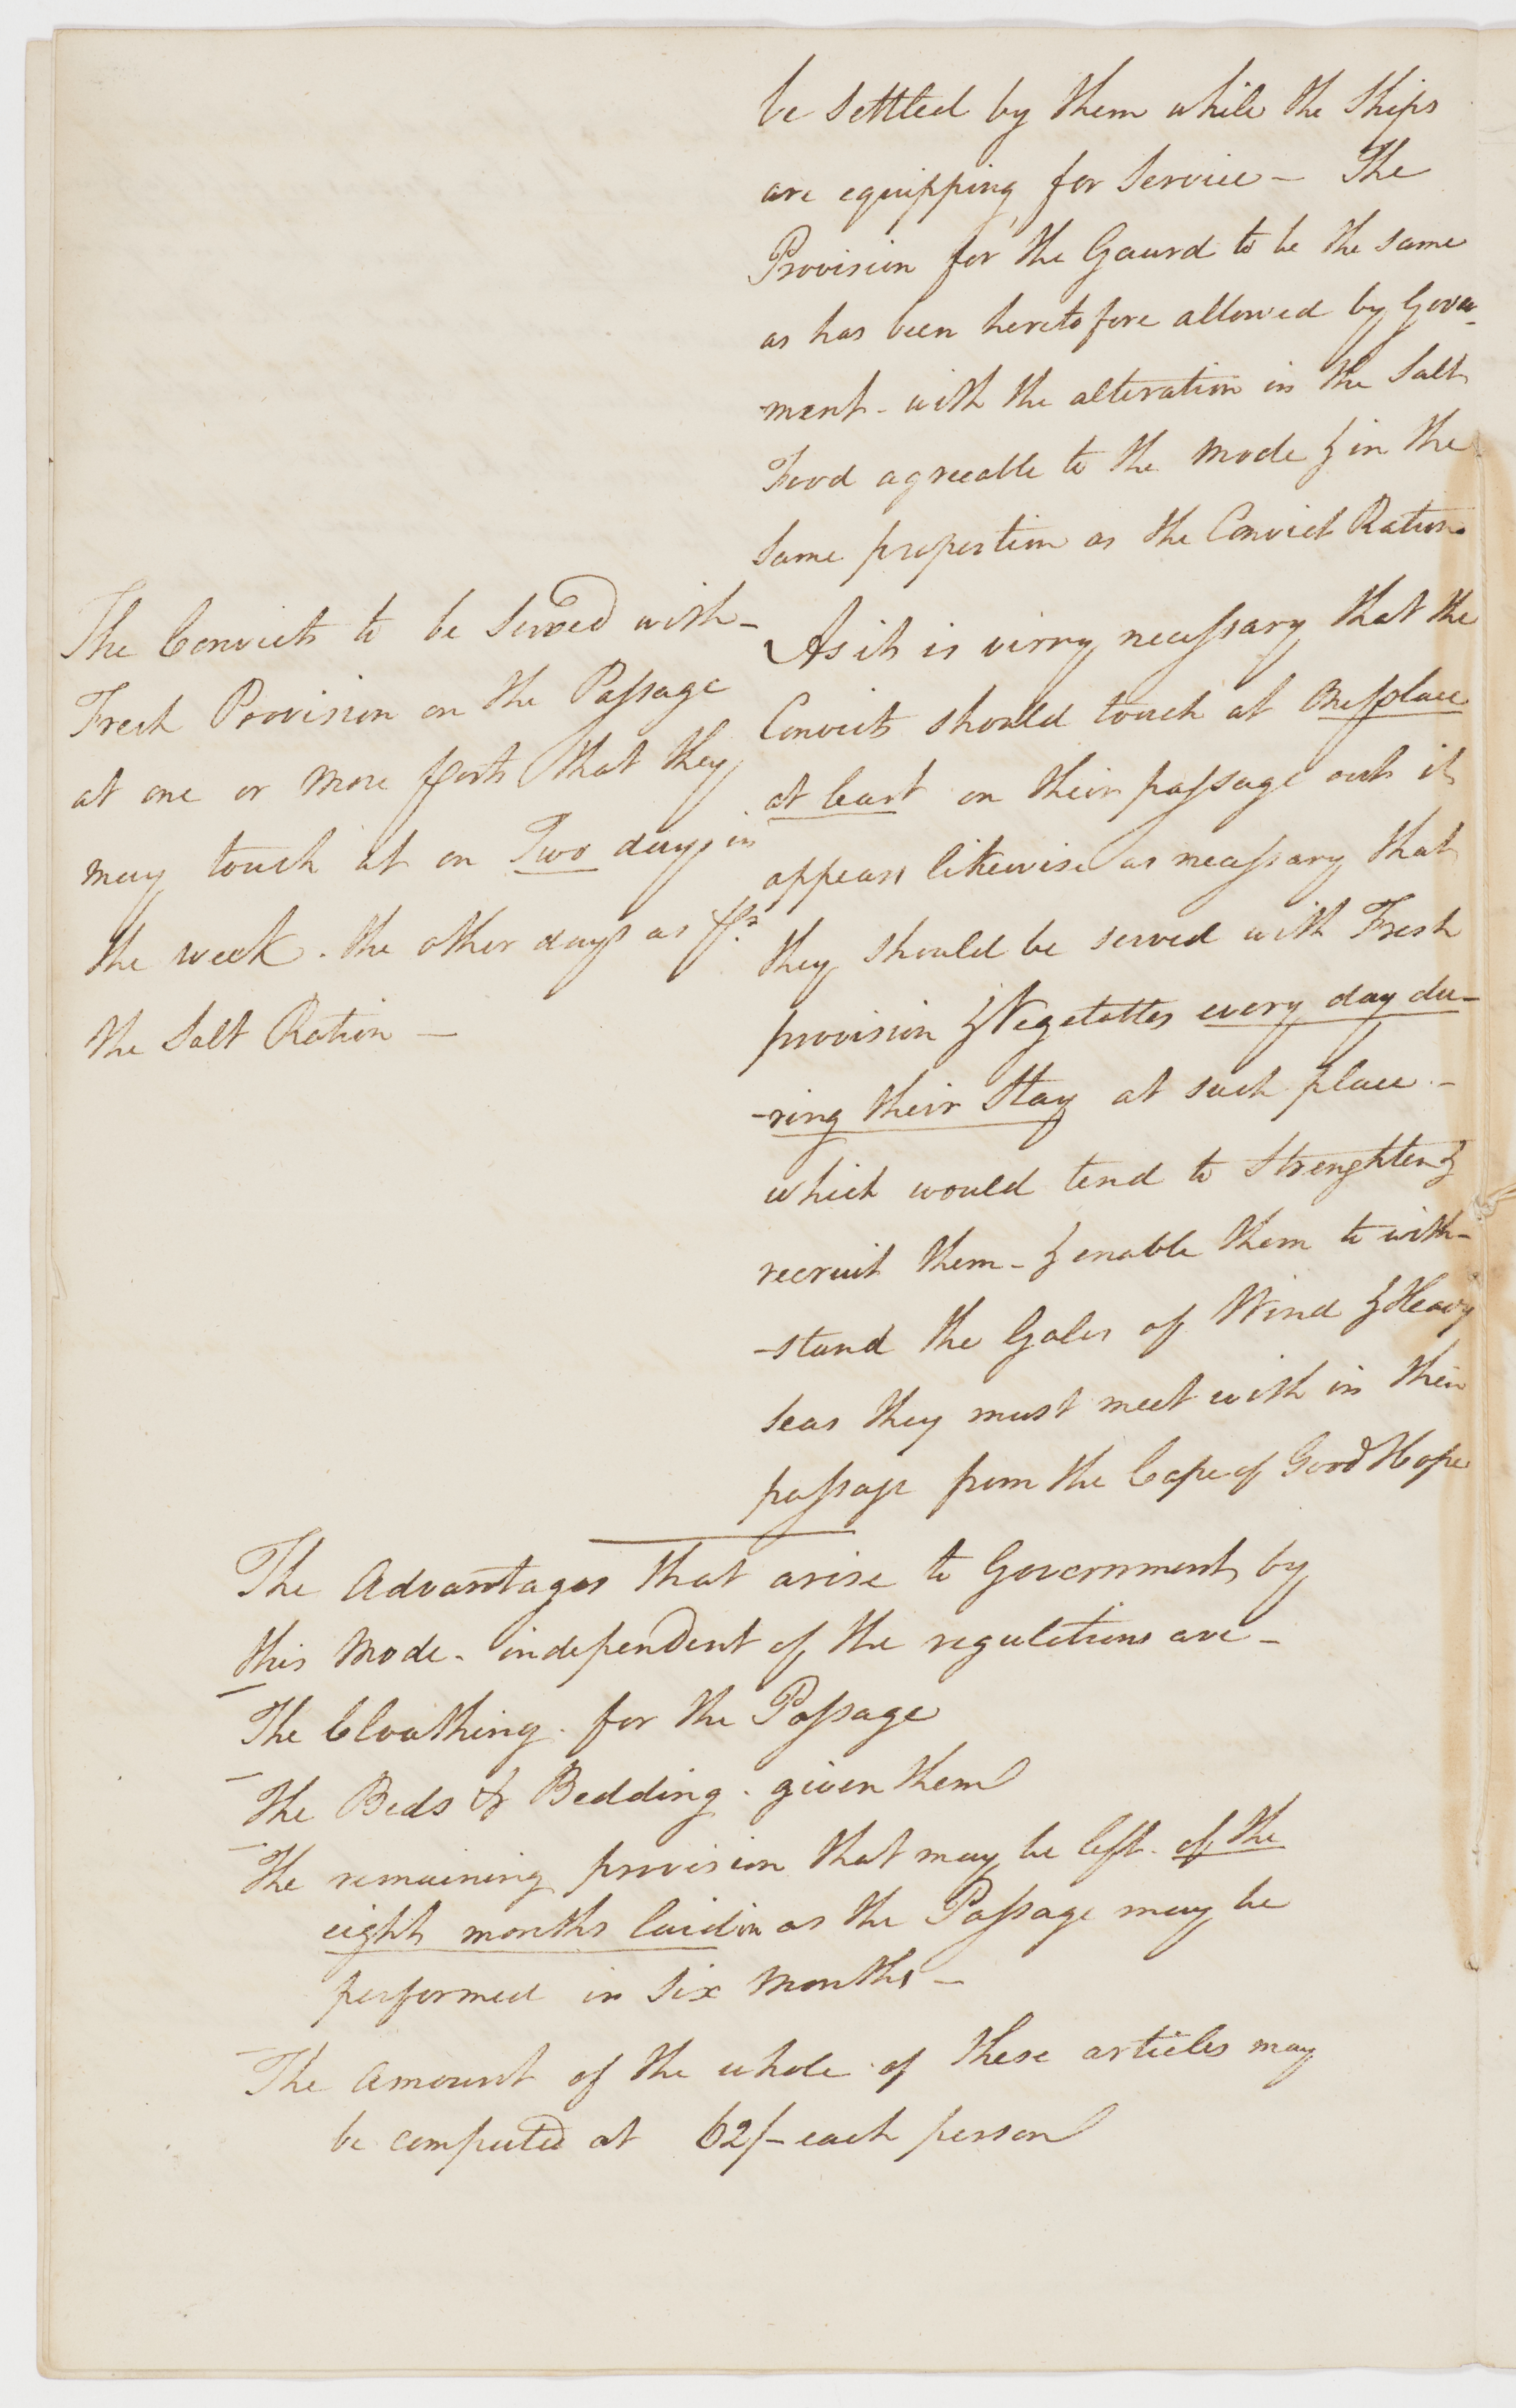 be settled by them while the Ships
are equipping for Service – The
Provision for the Gaurd to be the same
as has been heretofore allowed by Govern-
-ment – with the alteration in the Salt
Food agreeable to the Mode & in the
same proportion as the Convict Ration.
The Convicts to be Served with –
Fresh Provision on the Passage
at one or more ports that they
may touch at on Two days in
the week. the other days as pr
the Salt Ration –
As it is virry necessary that the
Convicts should touch at One place
at least on their passage out it
appears likewise as necessary that
they should be served with Fresh
provision & Vegetattes every day du-
-ring their Stay at such place –
which would tend to Strenghten &
recruit them – & enable them to with-
-stand the Gales of Wind & Heavy
Seas they must meet with in their
passage from the Cape of Good Hope
The Advantages that arise to Government by
this Mode – independent of the regulations are –
– The Cloathing . for the Passage
– The Beds & Bedding . given them
– The remaining provision that may be left . of the
eight months laid in as the Passage may be
performed in Six Months –
– The Amount of the whole of these articles may
be computed at 62/– each person